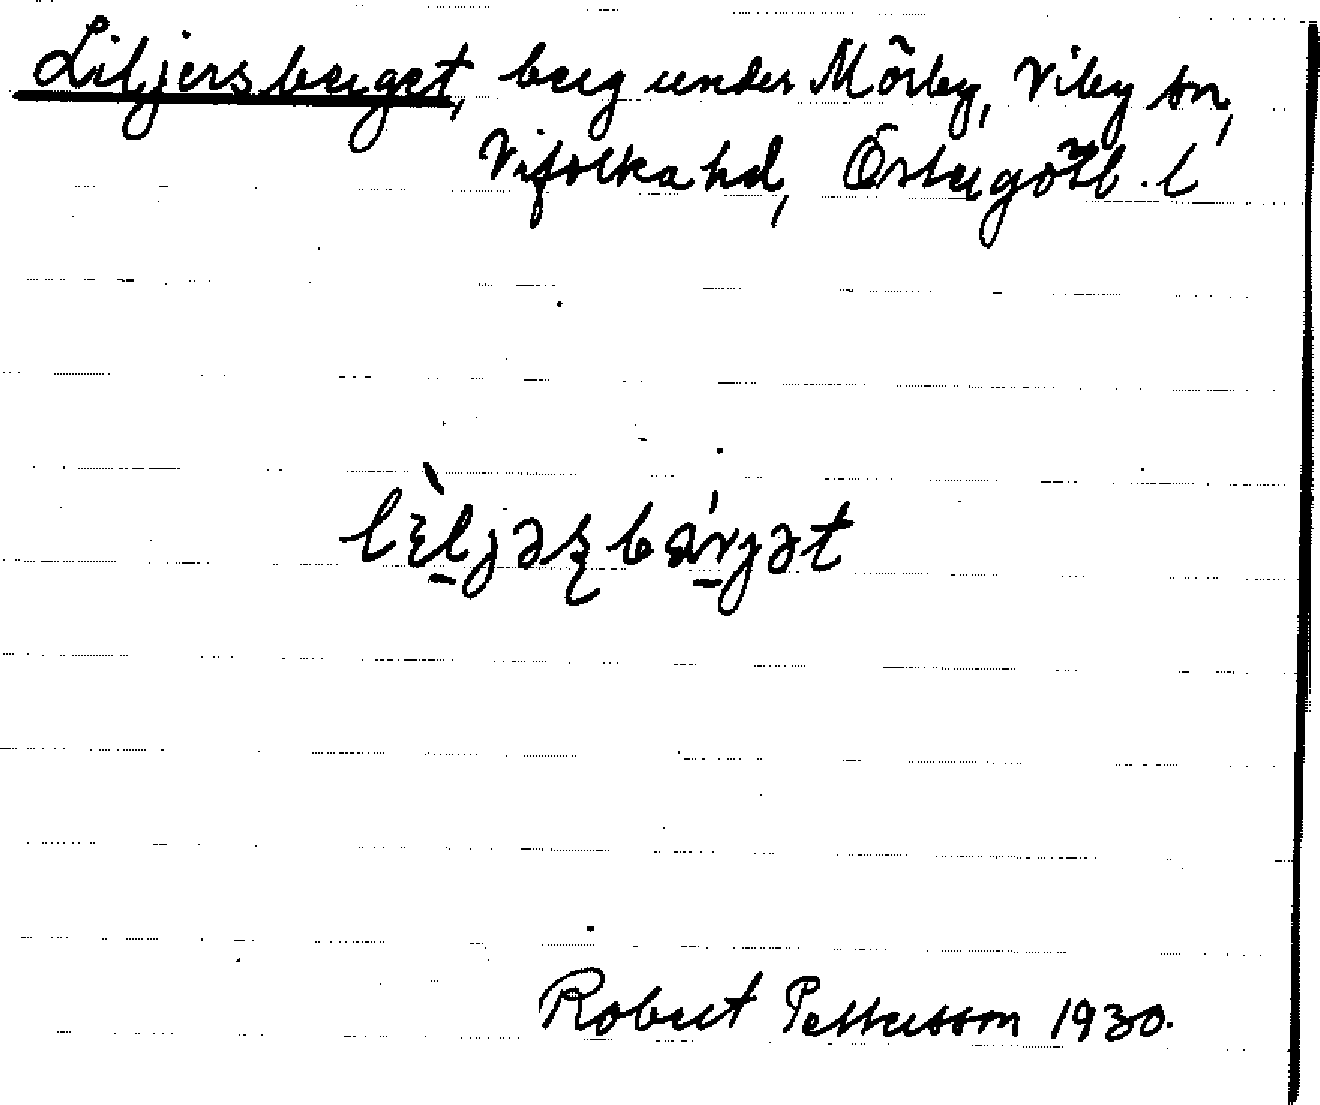 Liljersberget, berg under Mörby, Viby sn,
Vifolka hd, Östergötl. l
lèljəʂbárjət
Robert Pettersson 1930.